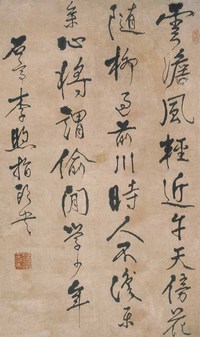 雲澹風輕近午天傍花
隨柳過前川時人不識樂
余心將謂偷閒學少年
李煦指頭書